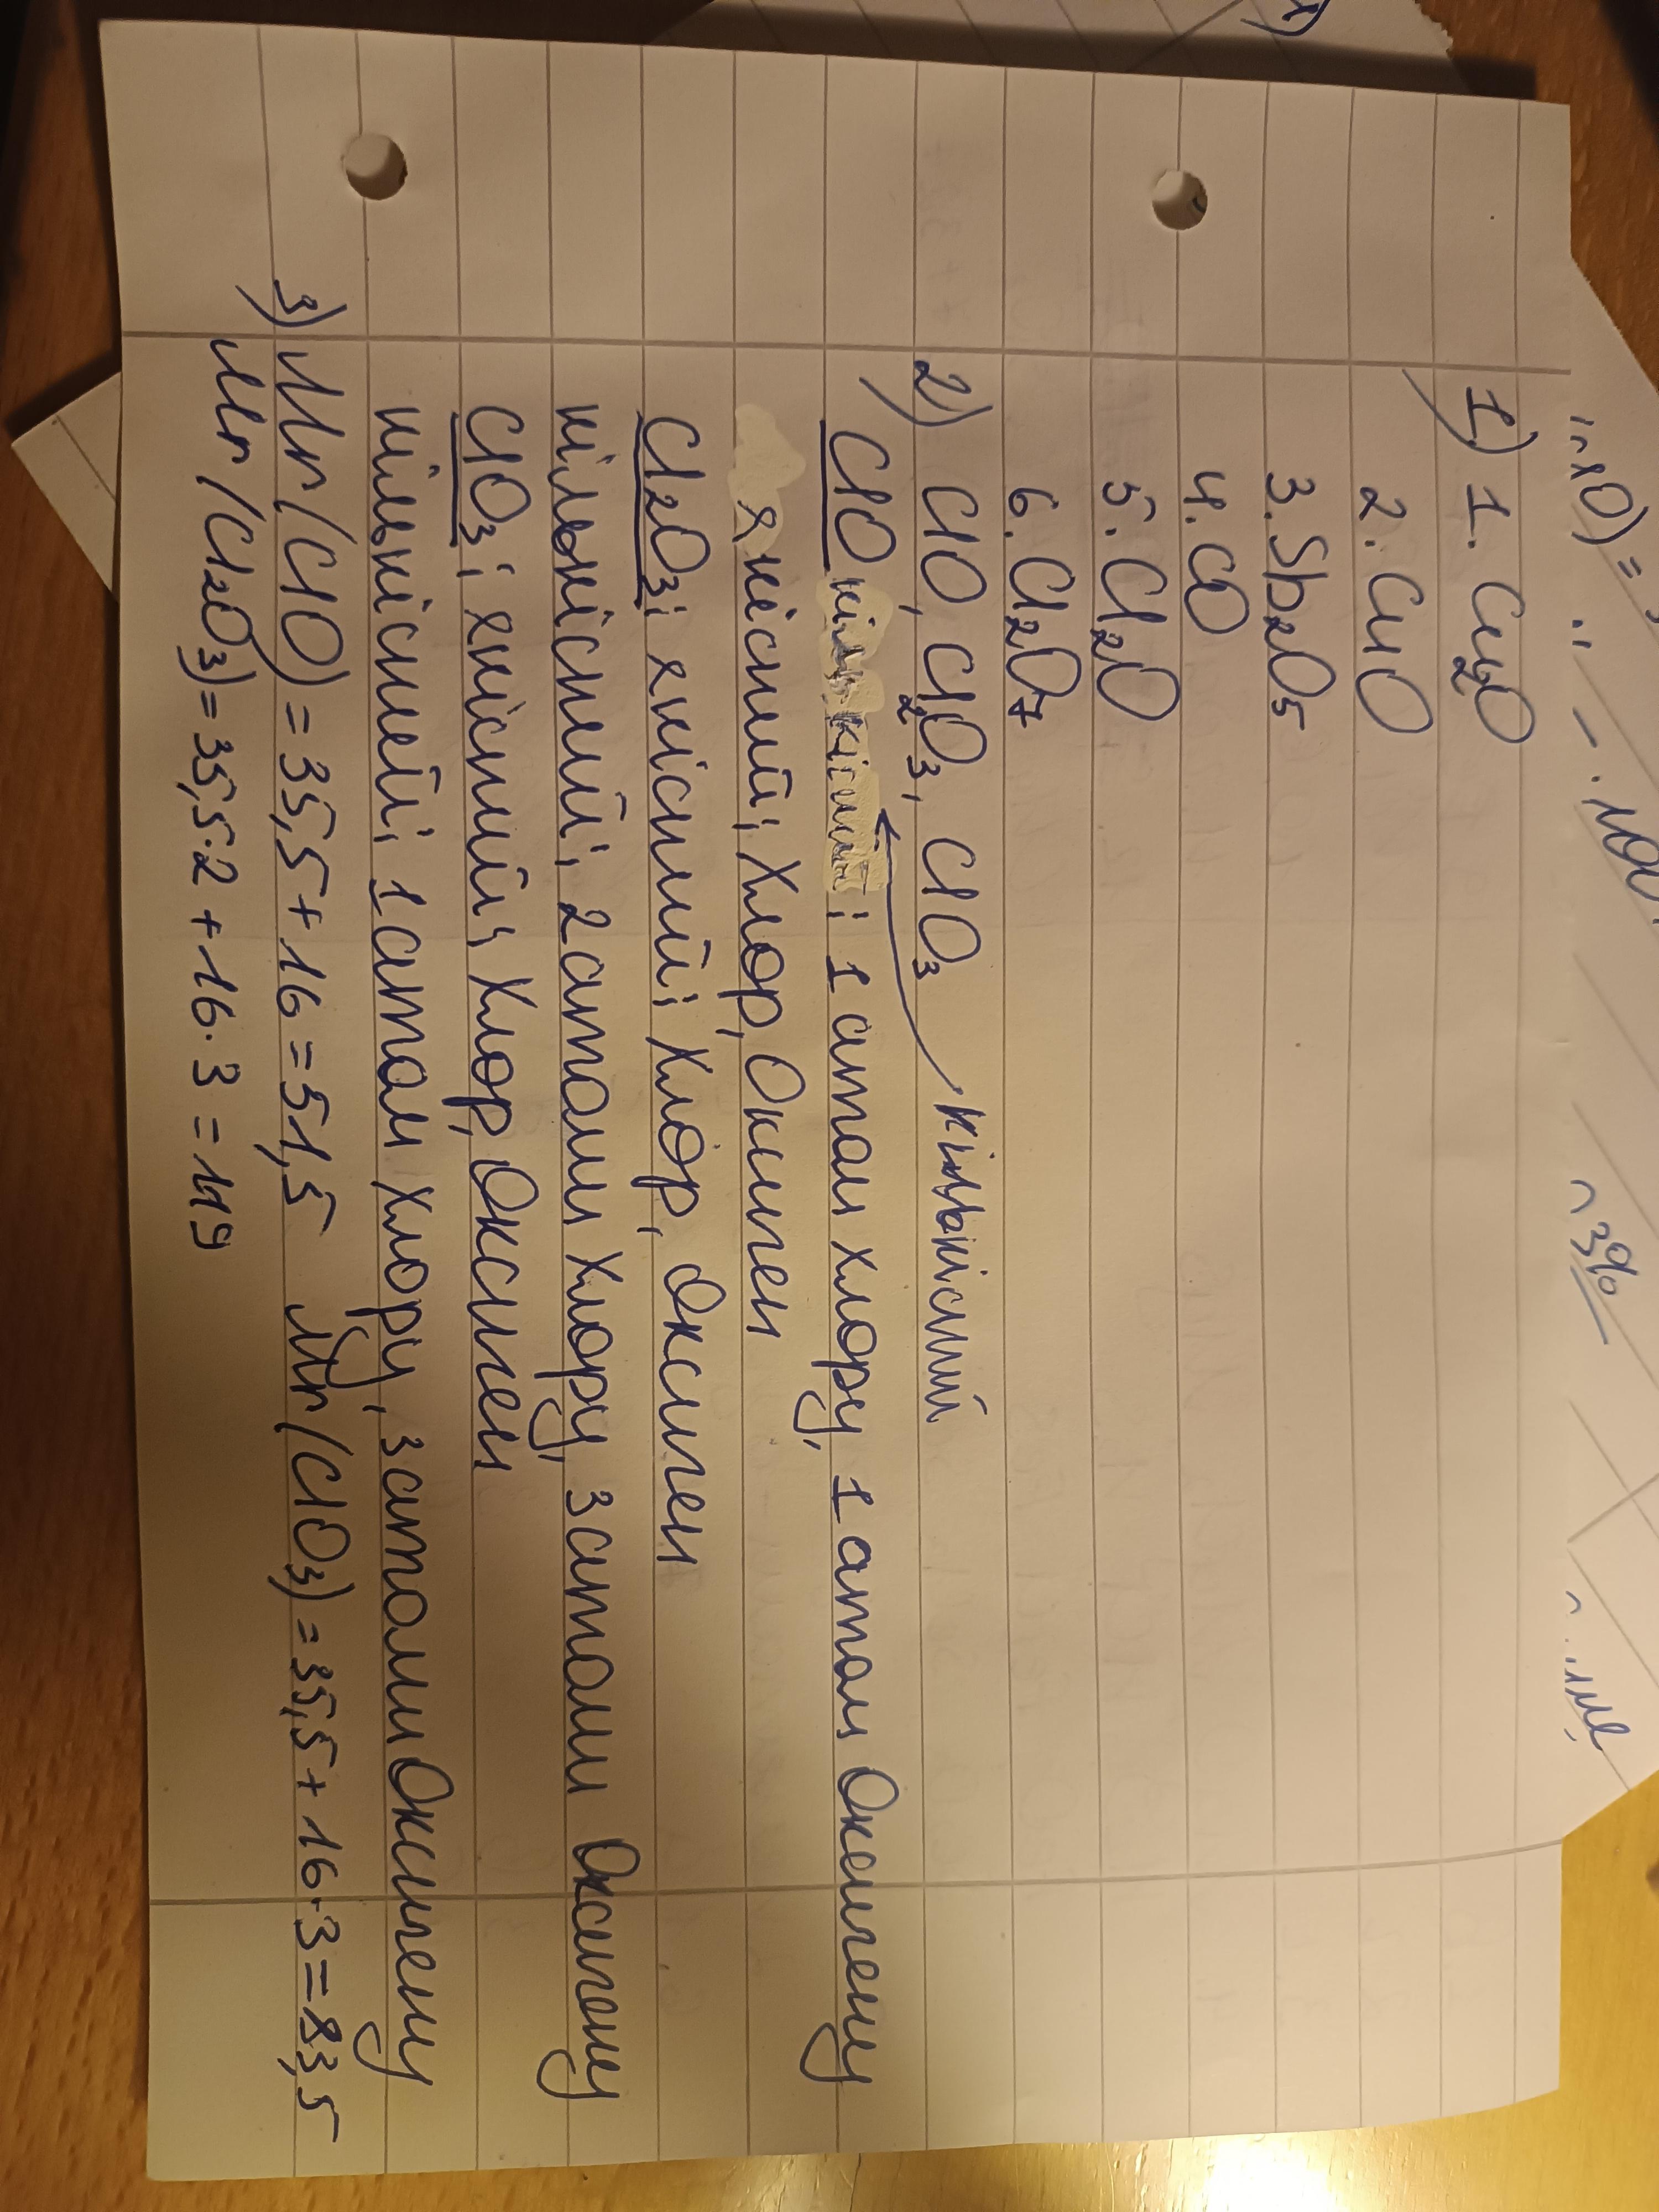 1) 1. Cu₂O
2. CuO
3. Sb₂O₅
4. CO
5. Cl₂O
6. Cl₂O₇
2) ClO, Cl₂O₃, ClO₃ кількісний
ClO кількісний: 1 атом хлору, 1 атом Оксигену
якісний: Хлор, Оксиген
Cl₂O₃: якісний: Хлор, Оксиген
кількісний: 2 атоми Хлору, 3 атоми Оксигену
ClO₃: якісний: Хлор, Оксиген
кількісний: 1 атом хлору, 3 атоми Оксигену
3) Mr(ClO) = 35,5 + 16 = 51,5 Mr(ClO₃) = 35,5 + 16·3 = 83,5
Mr(Cl₂O₃) = 35,5·2 + 16·3 = 119